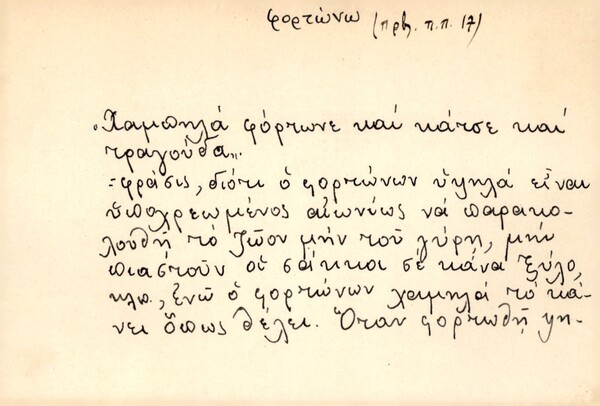 φορτώνω (πρβ. π.π. 17)
„Χαμπηλά φόρτωνε καί κάτσε καί
τραγούδα„.
=φράσις, διότι ὁ φορτώνων ὑψηλά εἶναι
ὑποχρεωμένος αἰωνίως νά παρακο-
λουθῇ τό ζῶον μήν τοῦ γύρῃ, μήν
πιαστοῦν οἱ σάκκοι σέ κάνα ξύλο,
κλπ., ἐνῶ ὁ φορτώνων χαμηλά τό κά-
νει ὅπως θέλει. Ὅταν φορτωθῇ ψη-